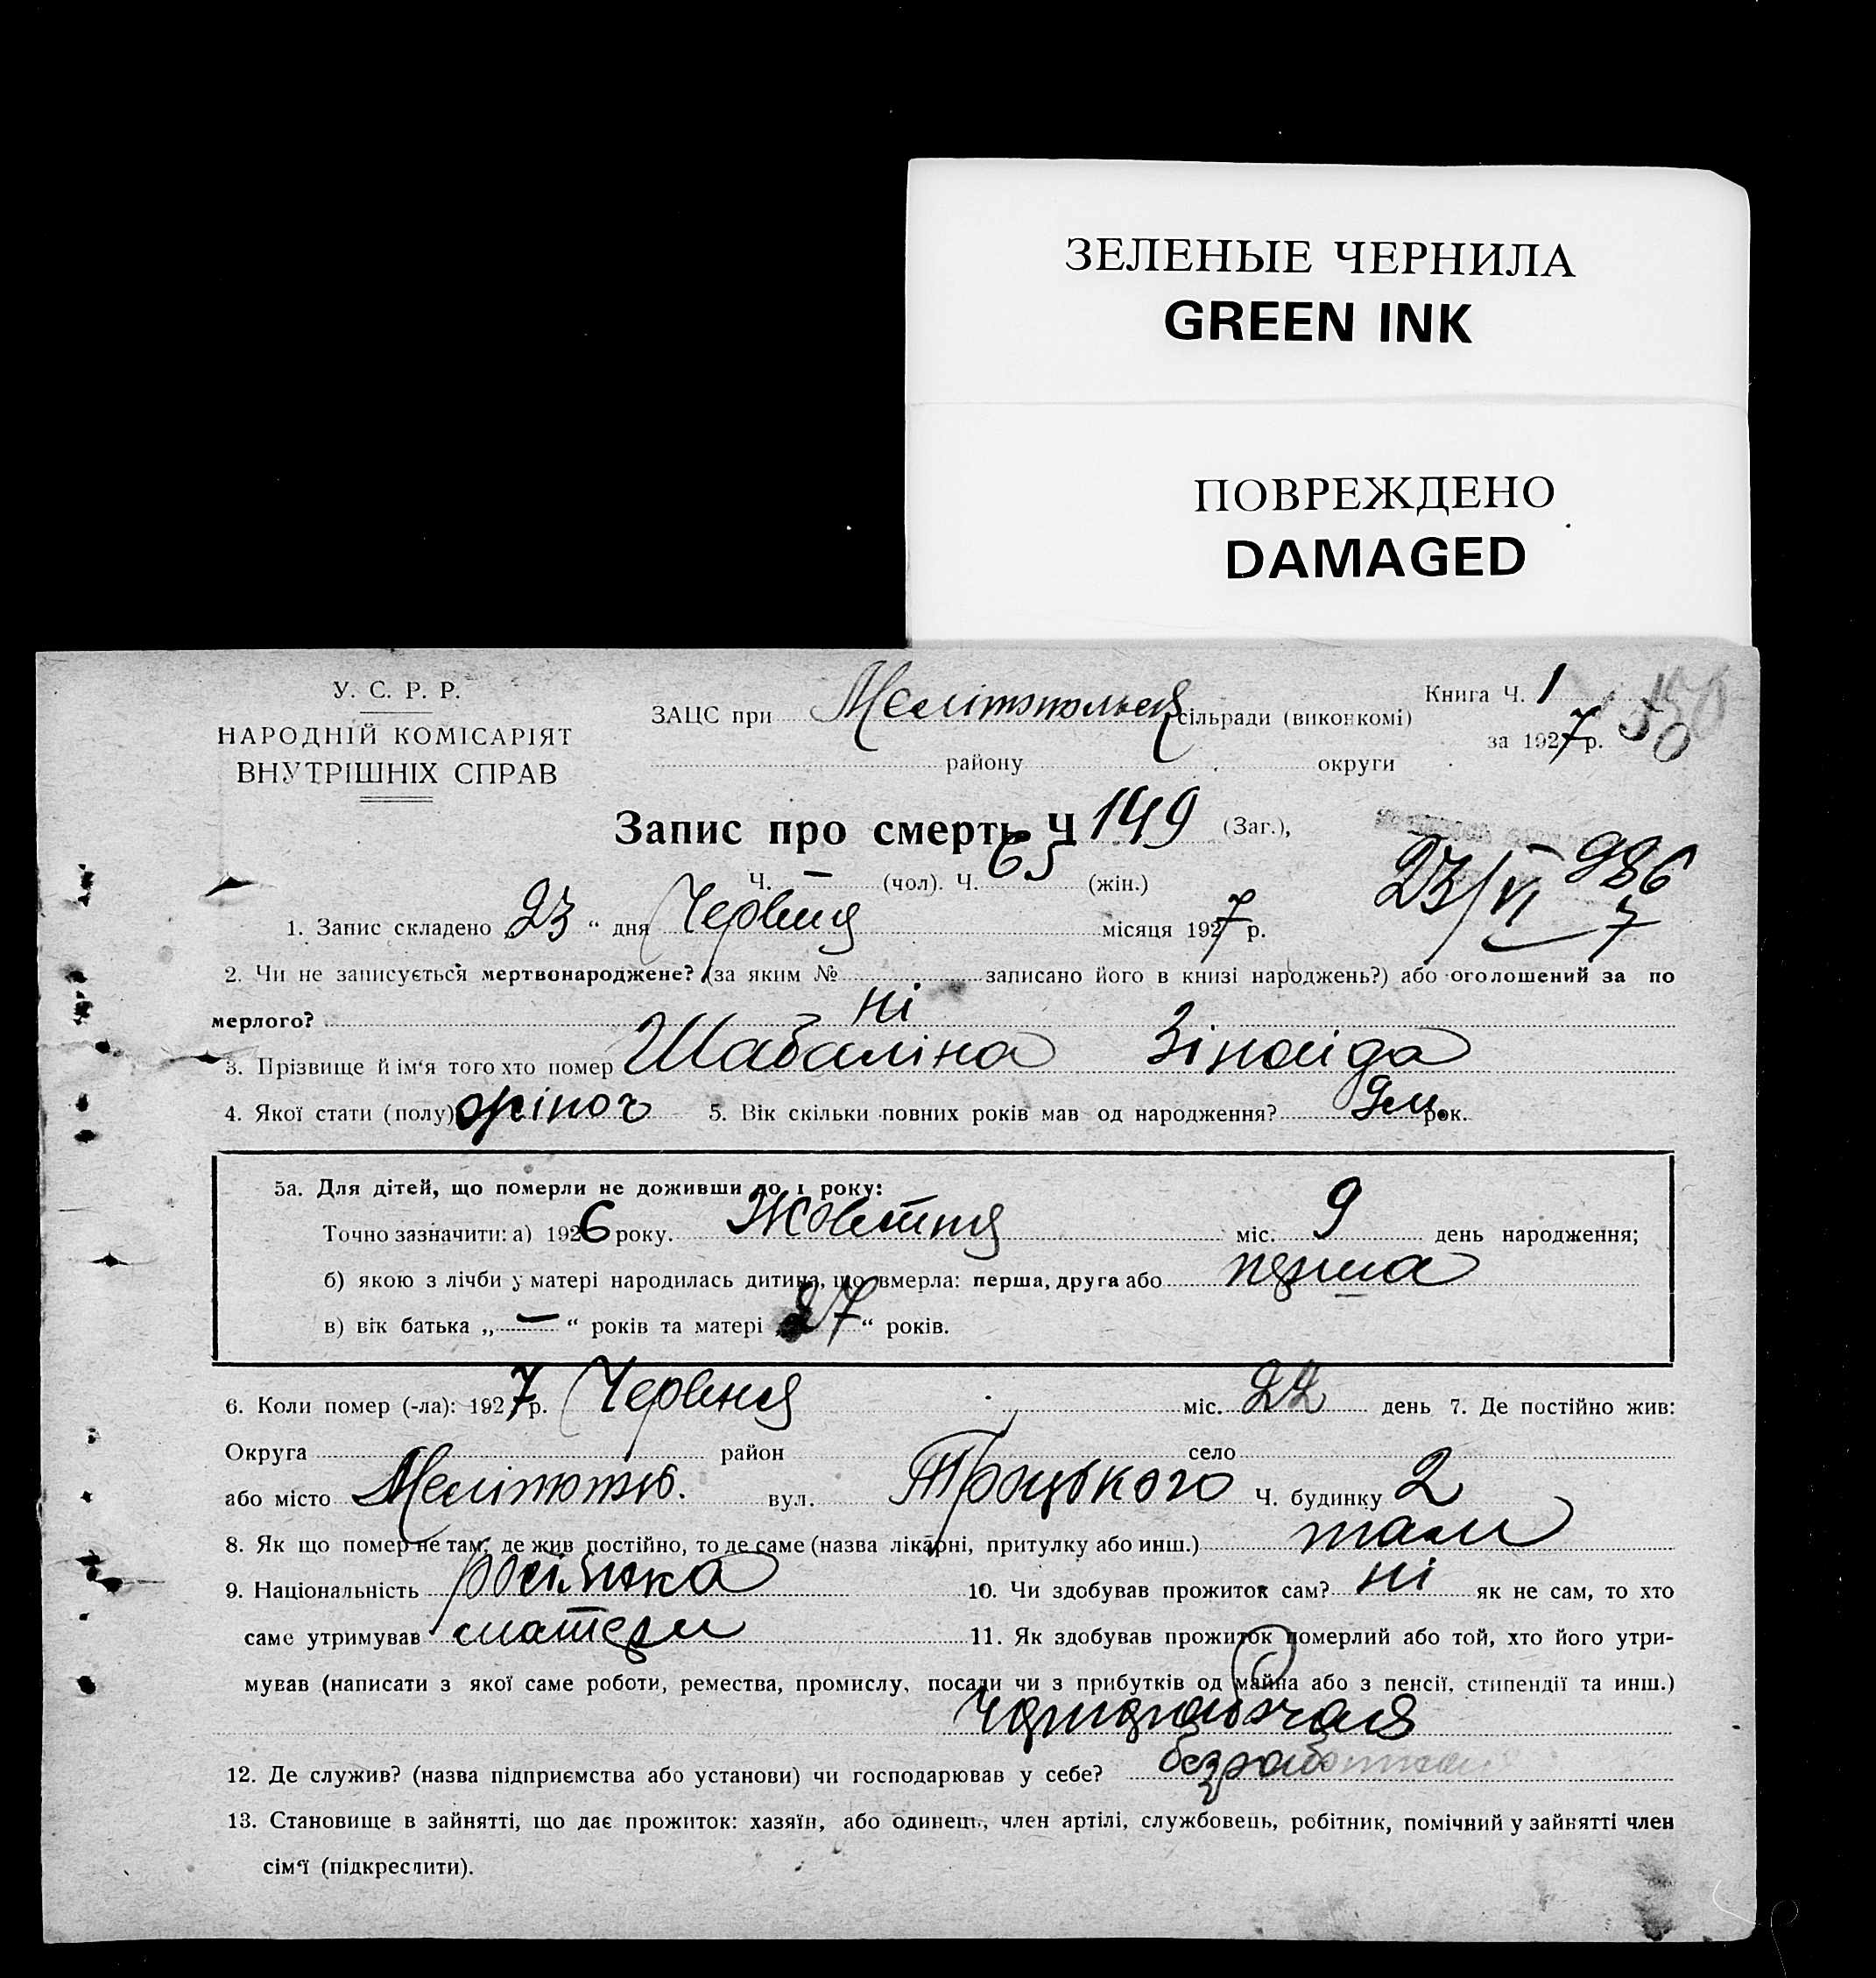 ЗЕЛЕНЫЕ ЧЕРНИЛА
GREEN INK
ПОВРЕЖДЕНО
DAMAGED
У. С. Р. Р.
НАРОДНІЙ КОМІСАРІЯТ
ВНУТРІШНІХ СПРАВ
ЗАЦС при сільради (виконкомі)
району округи
Книга Ч. 1
за 1927 р.
50
Запис про смерть Ч 149 (Заг.),
Ч. — (чол). Ч. 65 (жін.)
23/VI 7
986
1. Запис складено „23“ дня Червня місяця 1927 р.
2. Чи не записується мертвонароджене? (за яким № записано його в книзі народжень?) або оголошений за по
мерлого? ні
3. Прізвище й ім'я того хто помер Шабаліна Зінаіда
4. Якої стати (полу) жіноч 5. Вік скільки повних років мав од народження? 9 м рок.
5а. Для дітей, що померли не доживши до 1 року:
Точно зазначити: а) 1926 року. Жовтня міс. 9 день народження;
б) якою з лічби у матері народилась дитина, що вмерла: перша, друга або перша
в) вік батька „—“ років та матері „27“ років.
6. Коли помер (-ла): 1927 р. Червня міс. 22 день 7. Де постійно жив:
Округа район село
або місто Мелітопіль. вул. Троцького Ч. будинку 2
8. Як що помер не там, де жив постійно, то де саме (назва лікарні, притулку або инш.) там
9. Національність росіянка 10. Чи здобував прожиток сам? ні як не сам, то хто
саме утримував матери 11. Як здобував прожиток померлий або той, хто його утри-
мував (написати з якої саме роботи, ремества, промислу, посади чи з прибутків од майна або з пенсії, стипендії та инш.)
12. Де служив? (назва підприємства або установи) чи господарював у себе?
13. Становище в зайнятті, що дає прожиток: хазяїн, або одинець, член артілі, службовець, робітник, помічний у зайнятті член
сім'ї (підкреслити).